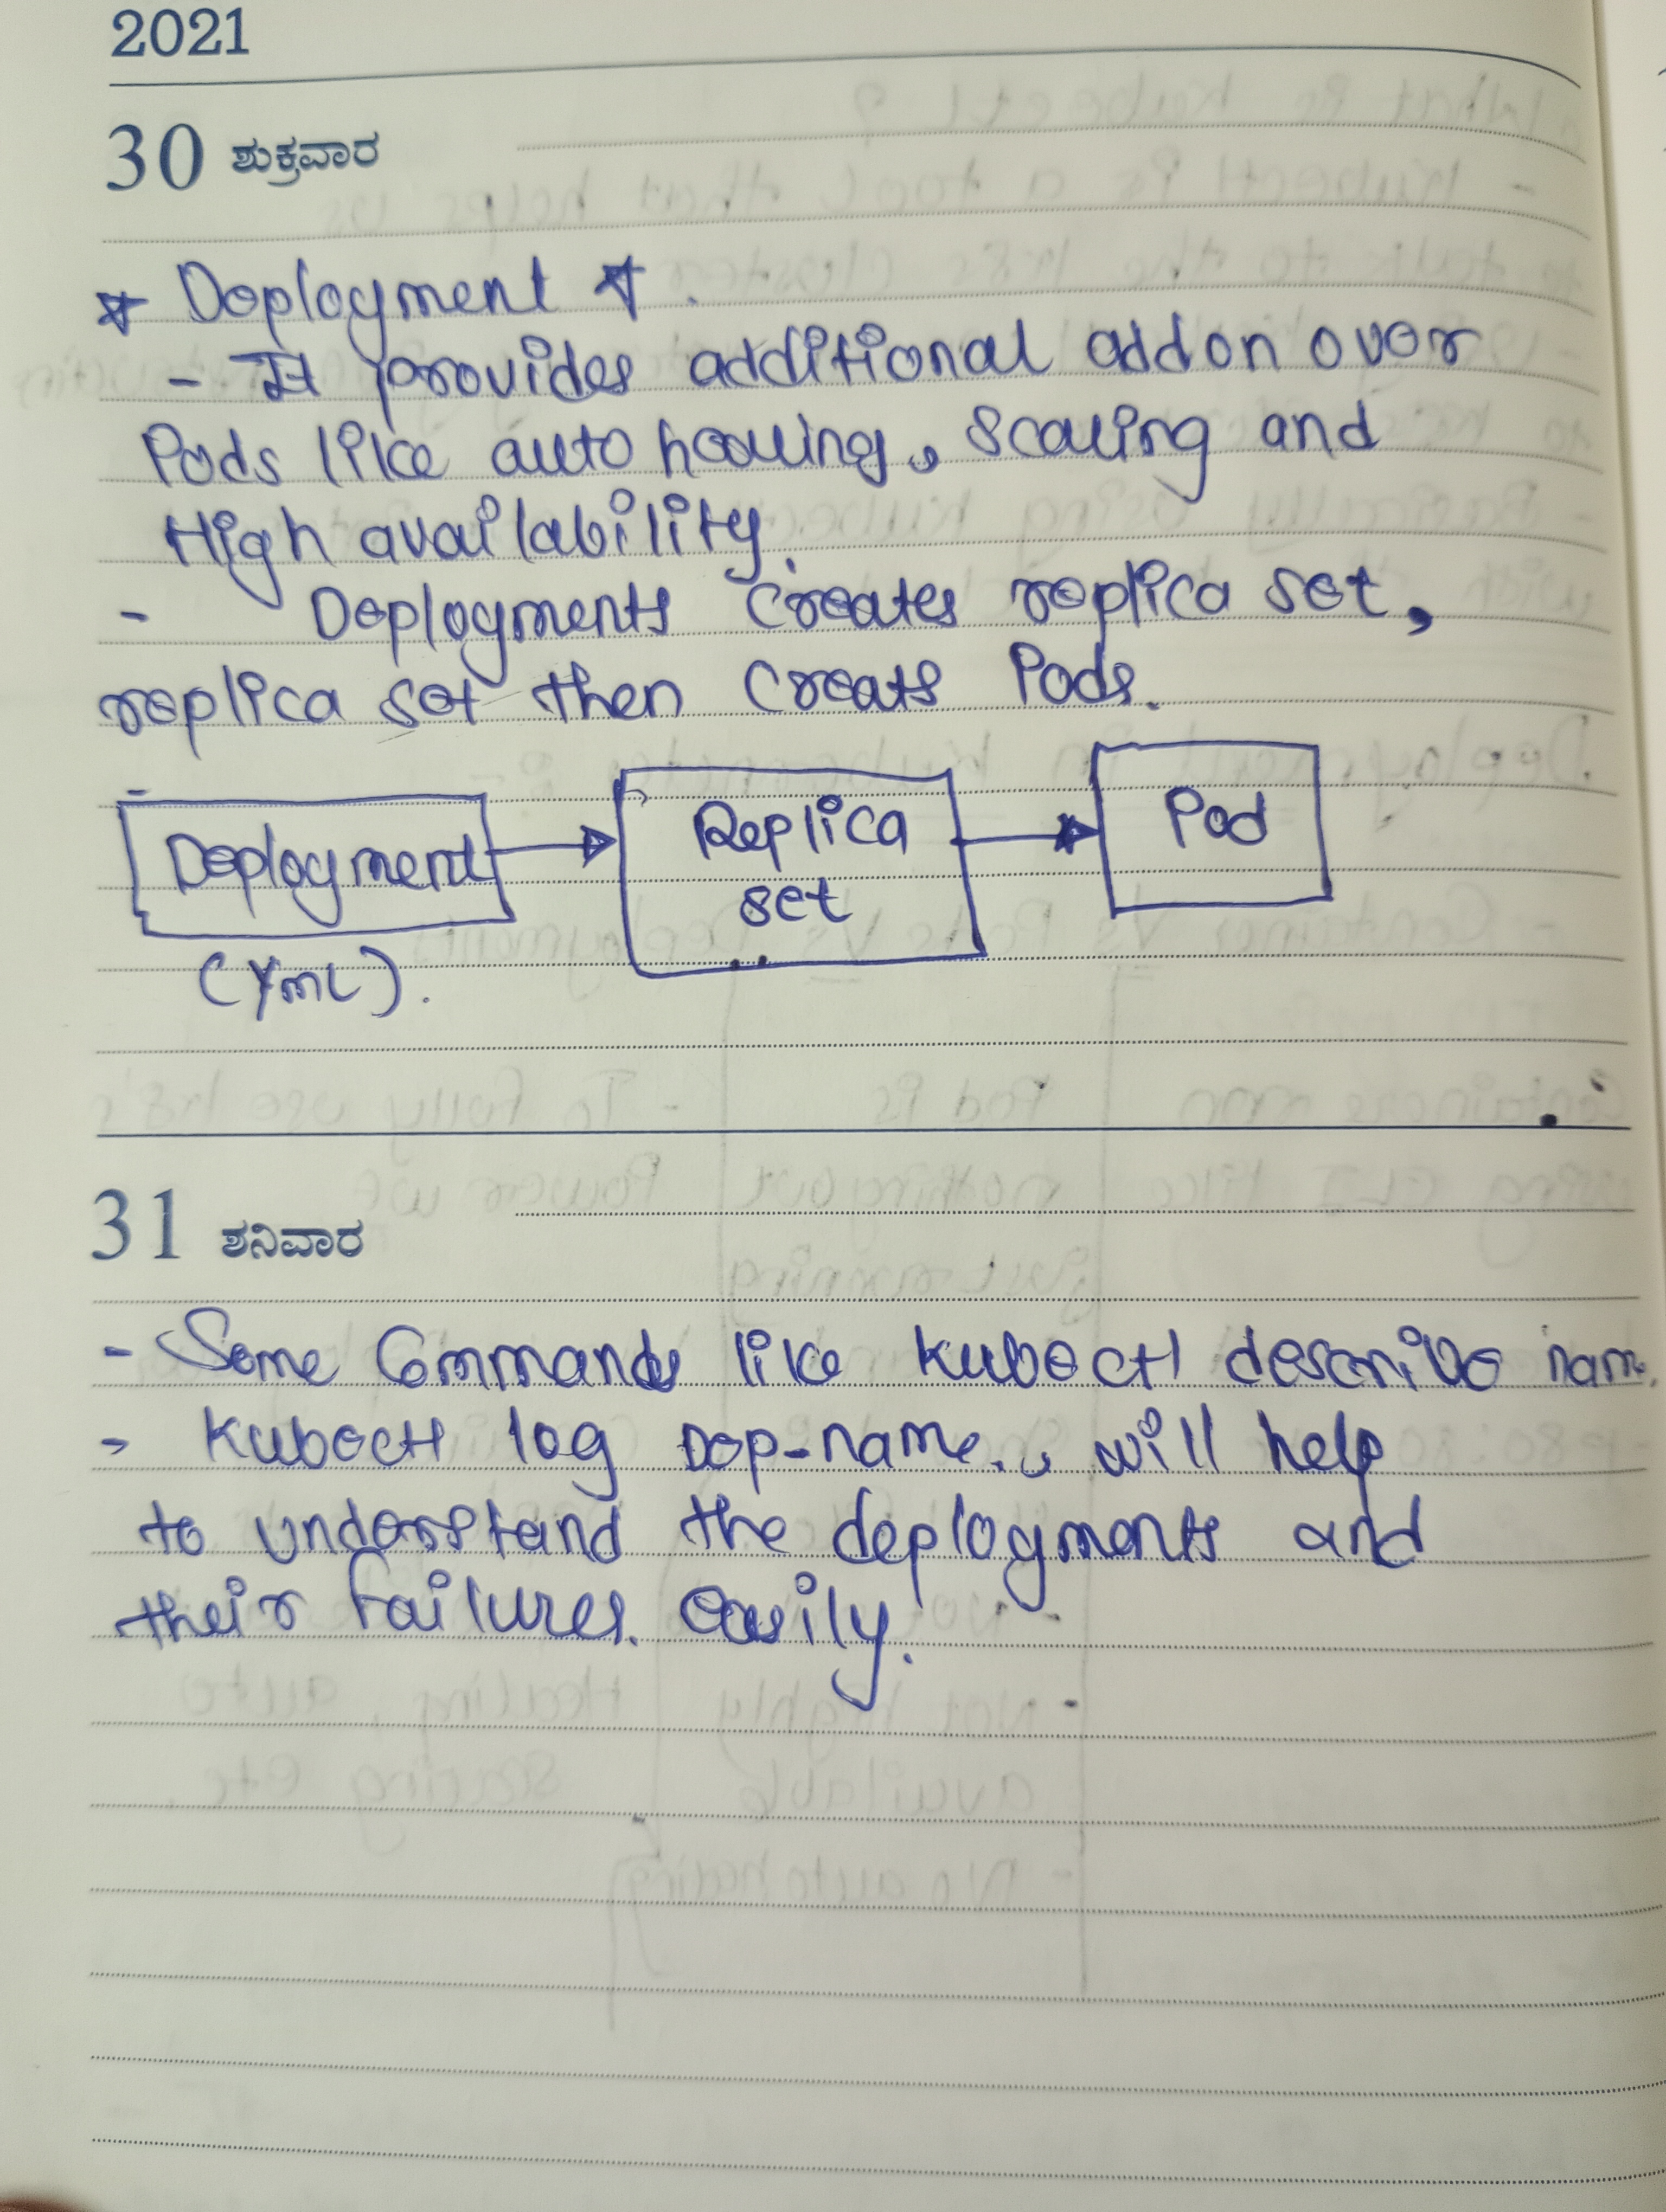 2021
30 ಶುಕ್ರವಾರ
* Deployment *.
- It provides additional addon over
Pods like auto healing, scaling and
High availability.
- Deployments creates replica set,
replica set then creats Pods.
Deployment
(Yml).
Replica
set
Pod
31 ಶನಿವಾರ
- Some Commands like kubectl describe name.
- kubectl log Dep-name., will help
to understand the deployments and
their failures. easily.